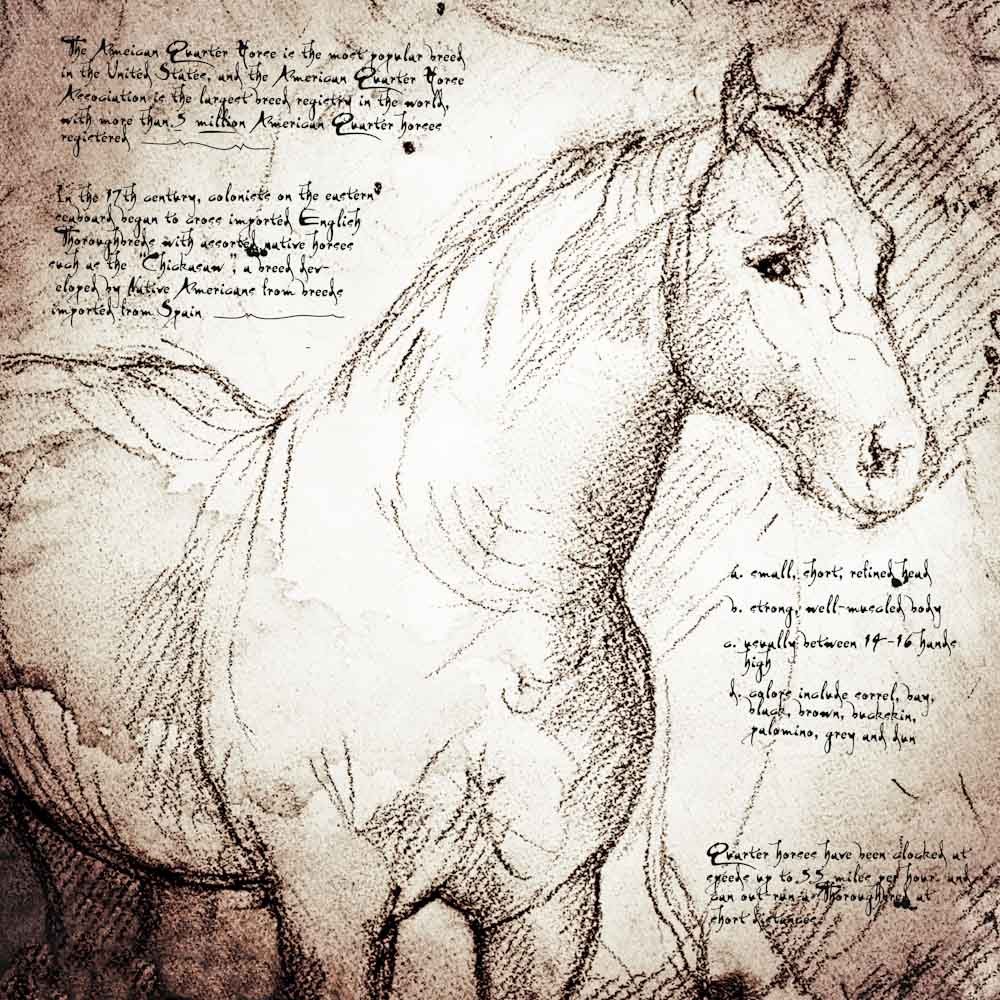 The Ameican Quarter Horse is the most popular breed
in the United States, and the American Quarter Horse
Association is the largest breed registry in the world,
with more than 5 million American Quarter horses
registered
In the 17th century, colonists on the eastern
seaboard began to cross imported English
Thoroughbreds with assorted native horses
such as the "Chickasaw", a breed dev-
eloped by Native Americans from breeds
imported from Spain
a. small, short, refined head
b. strong, well-muscled body
c. usually between 14-16 hands
high
d. colors include sorrel, bay,
black, brown, buckskin,
palomino, grey and dun
Quarter horses have been clocked at
speeds up to 55 miles per hour and
can out run a Thoroughbred at
short distances.